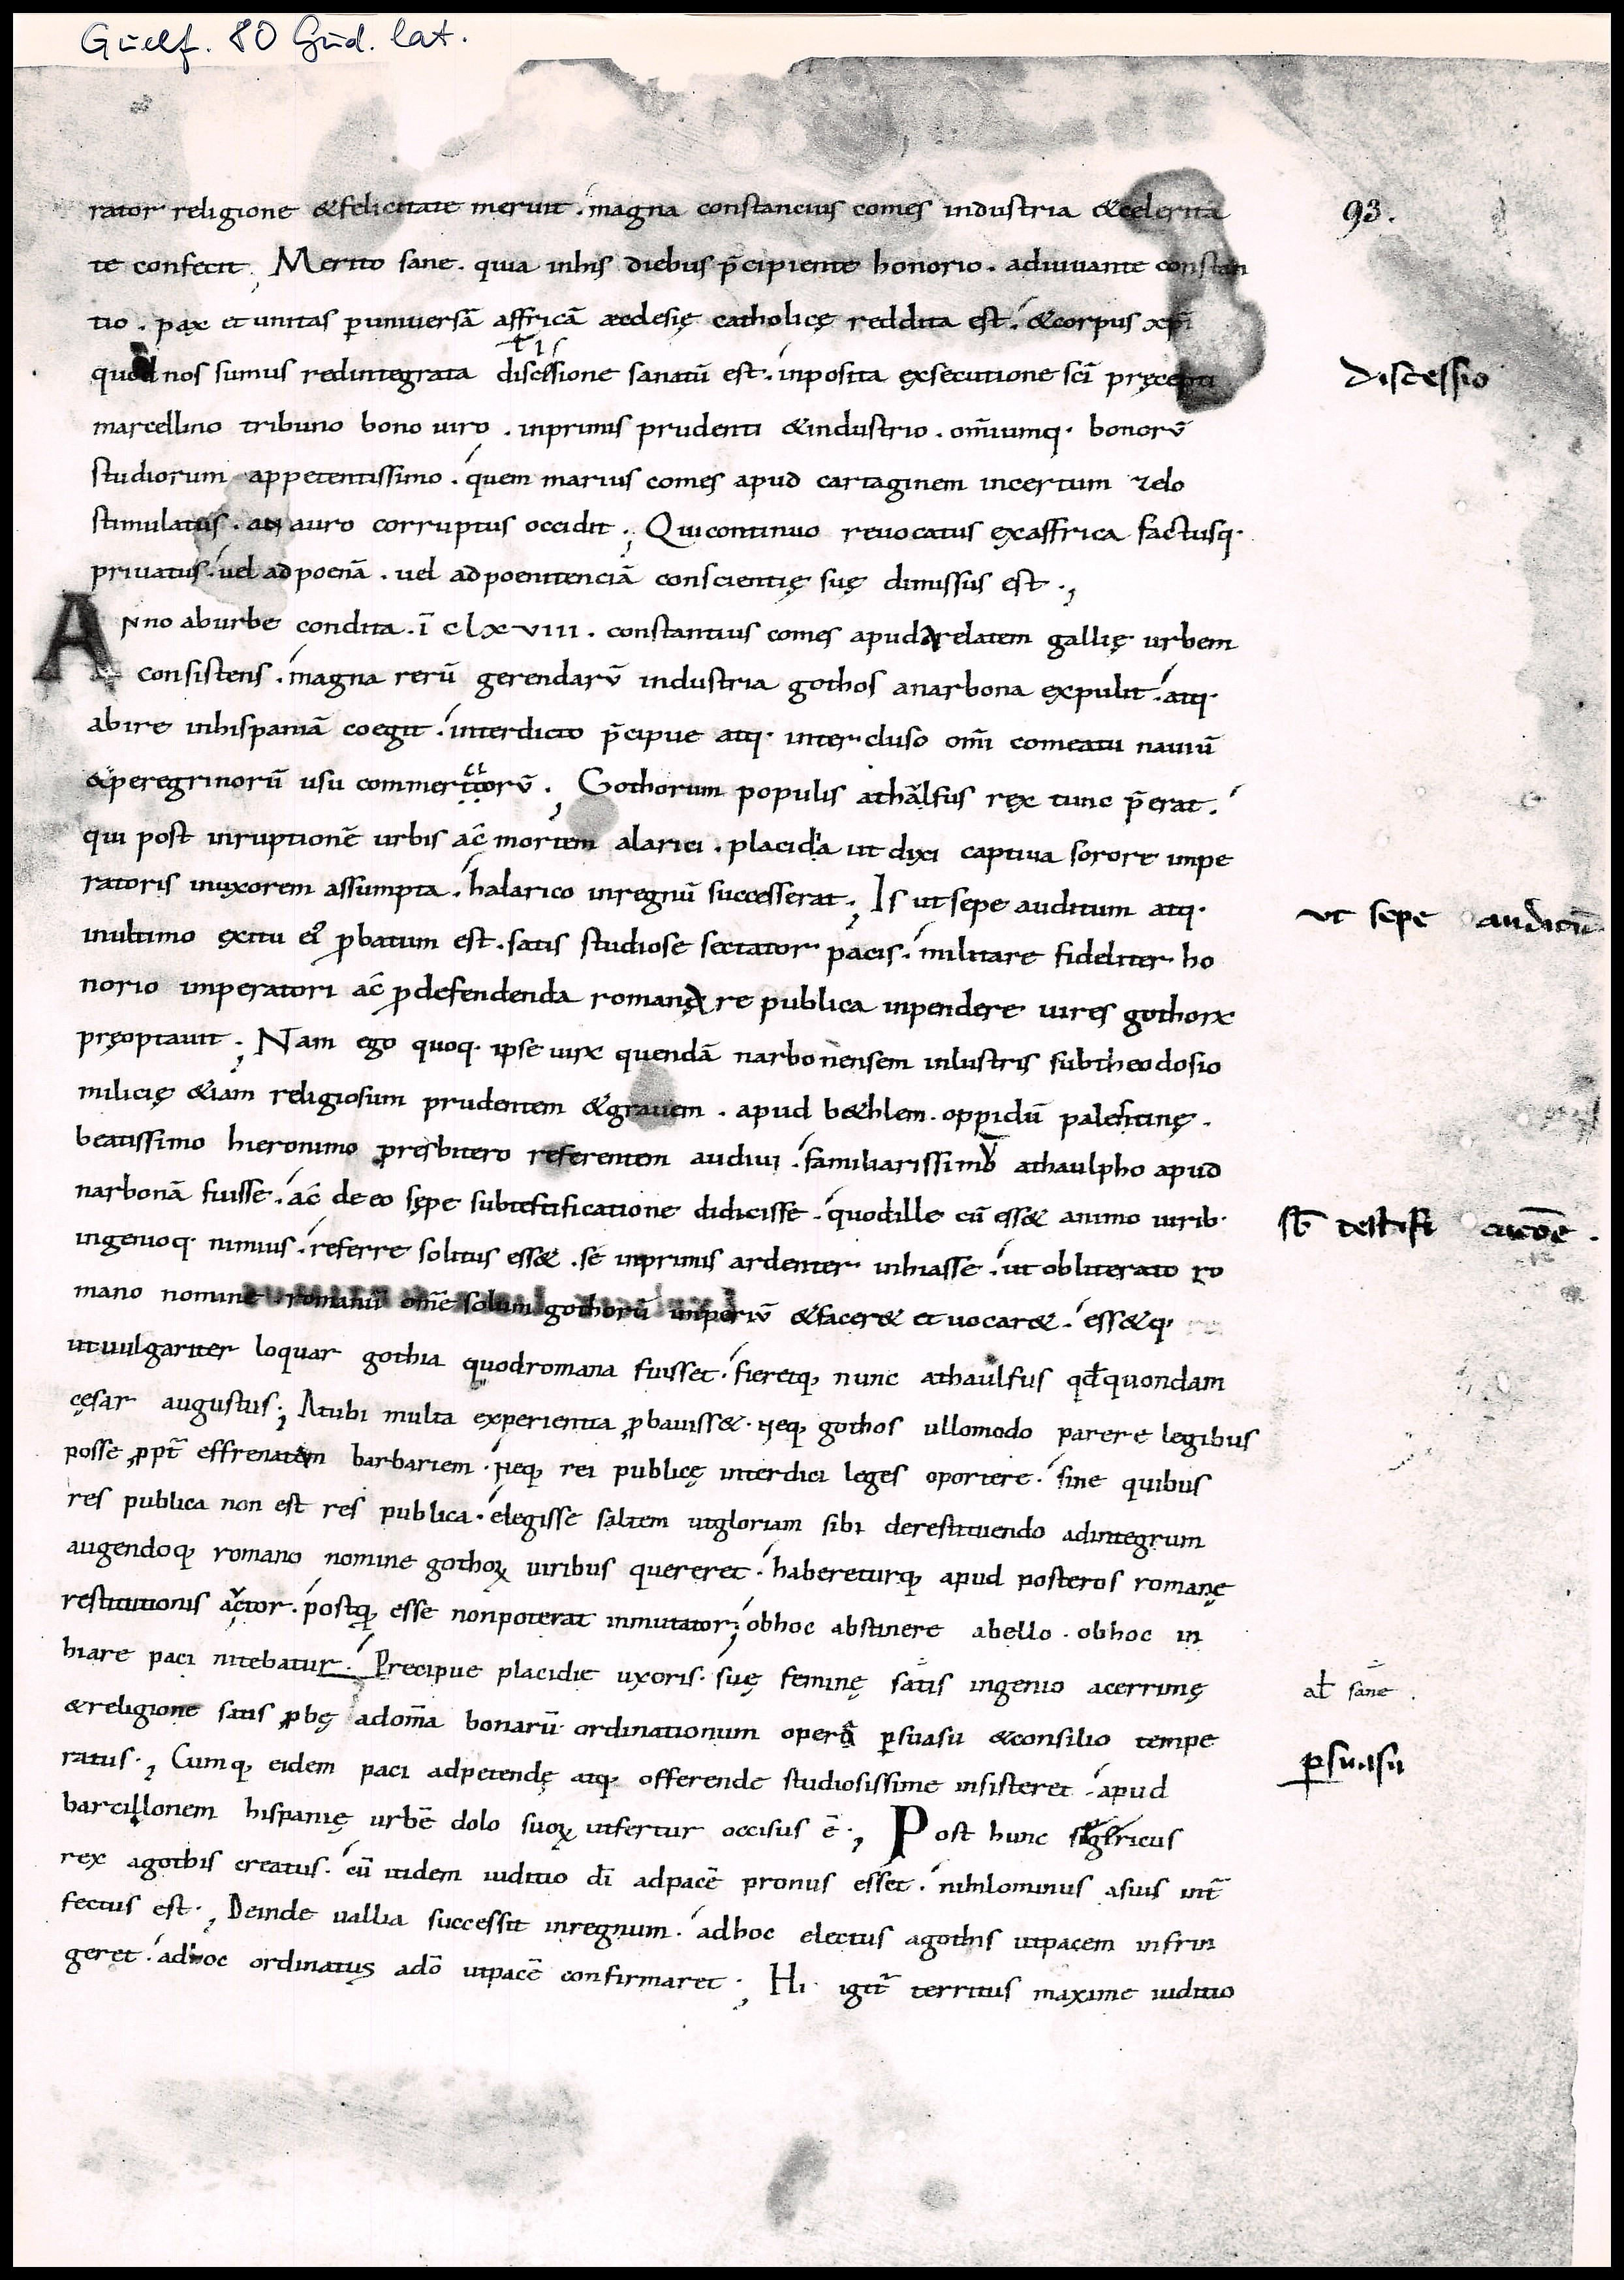 Guelf. 80 Gud. lat.
rator religione &felicitate meruit. magna constancius comes industria &celerita
93.
te confecit; Merito sane. quia inhis diebus p̄cipiente honorio. adiuuante constan
tio. pax et unitas ꝑuniuersā affricā aecclesię catholicę reddita est. &corpus xp̄i
quod nos sumus redintegrata discissione sanatū est. inposita exsecutione sc̄i pręcepti
discessio
marcellino tribuno bono uiro. inprimis prudenti &industrio. om̄iumq· bonorū
studiorum appetentissimo. quem marius comes apud cartaginem incertum zelo
stimulatus. an auro corruptus occidit; Quicontinuo reuocatus exaffrica factusq·
priuatus. uel adpoenā. uel adpoenitenciā conscientię suę dimissus est.;
Anno aburbe condita. ī clxviii. constantius comes apudarelatem gallię urbem
consistens. magna rerū gerendarū industria gothos anarbona expulit. atq·
abire inhispaniā coegit. interdicto p̄cipue atq· intercluso om̄i comeatu nauiū
&peregrinorū usu commerciorū.; Gothorum populis athaulfus rex tunc p̄erat.
qui post inruptionē urbis ac̄ mortem alarici. placida ut dixi captiua sorore impe
ratoris inuxorem assumpta. halarico inregnū successerat; Is ut sepe auditum atq·
ut sepe auditū
inultimo exitu ei᾽ ꝓbatum est. satis studiose sectator pacis. militare fideliter ho
norio imperatori ac̄ ꝓdefendenda romana re publica inpendere uires gothorꝝ
pręoptauit.; Nam ego quoq· ipse uirꝝ quendā narbonensem inlustris subtheodosio
milicię &iam religiosum prudentem &grauem. apud b&hlem. oppidū palestinę.
beatissimo hieronimo presbitero referentem audiui. familiarissimū athaulpho apud
narbonā fuisse. ac̄ de eo sępe subtestificatione didicisse. quodille cū ess& animo uirib·
sb̄ testifi catiōe.
ingenioq· nimius. referre solitus ess&. se inprimis ardenter inhiasse. ut obliterato ro
mano nomine romanū om̄e solum gothorū imperiū &facer& et uocar&. ess&q·
utuulgariter loquar gothia quodromana fuisset. fieretq· nunc athaulfus qd̄quondam
cęsar augustus.; Atubi multa experientia ꝓbauiss&. neq· gothos ullomodo parere legibus
posse ꝓpt̄ effrenatam barbariem. neq· rei publicę interdici leges oportere. sine quibus
res publica non est res publica. elegisse saltem utgloriam sibi derestituendo adintegrum
augendoq· romano nomine gothoꝝ uiribus quereret. habereturq· apud posteros romanę
restitutionis auctor. postq· esse nonpoterat inmutator; obhoc abstinere abello. obhoc in
hiare paci nitebatur. Precipue placidie uxoris. suę feminę satis ingenio acerrimę
al̄ sane.
&religione satis ꝓbę adom̄a bonarū ordinationum opera ꝑsuasu &consilio tempe
ꝑsuasu
ratus.; Cumq· eidem paci adpetendę atq· offerende studiosissime insisteret. apud
barcillonem hispanię urbē dolo suoꝝ utfertur occisus ē.; Post hunc
rex agothis creatus. cū itidem iuditio dī adpacē pronus esset. nihilominus asuis int̄
fectus est.; Deinde uallia successit inregnum. adhoc electus agothis utpacem infrin
geret. adhoc ordinatus adō utpacē confirmaret.; Hi igit̄ territus maxime iuditio